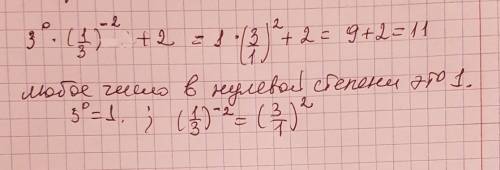 3⁰ · (1/3)⁻² + 2 = 1 · (3/1)² + 2 = 9 + 2 = 11
любое число в нулевой степени это 1.
3⁰ = 1. ; (1/3)⁻² = (3/1)²